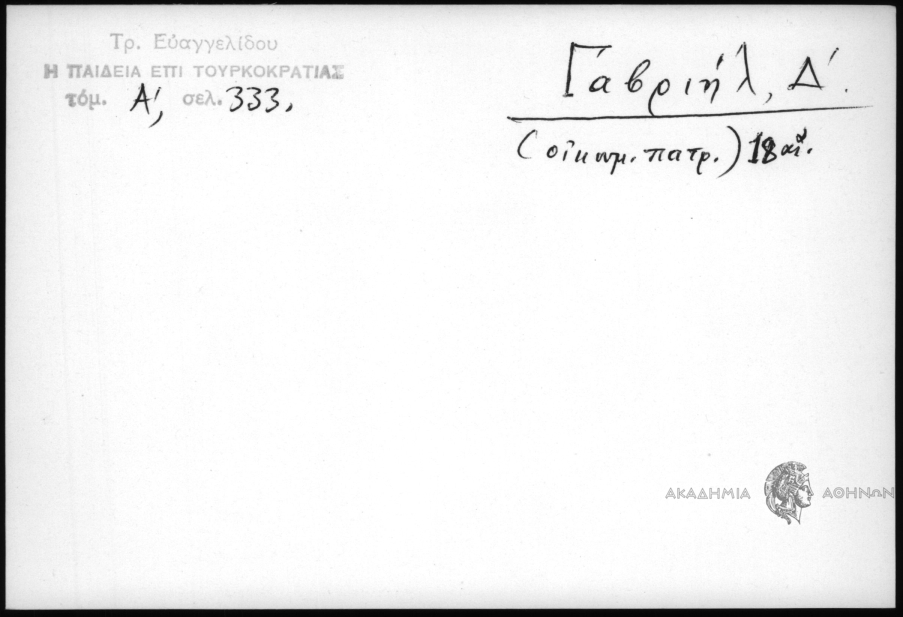 Τρ. Εὐαγγελίδου
Η ΠΑΙΔΕΙΑ ΕΠΙ ΤΟΥΡΚΟΚΡΑΤΙΑΣ
τόμ. Α', σελ. 333,
Γαβριήλ, Δ'.
(οἰκουμ. πατρ.) 18 αἰ.
ΑΚΑΔΗΜΙΑ ΑΘΗΝΩΝ